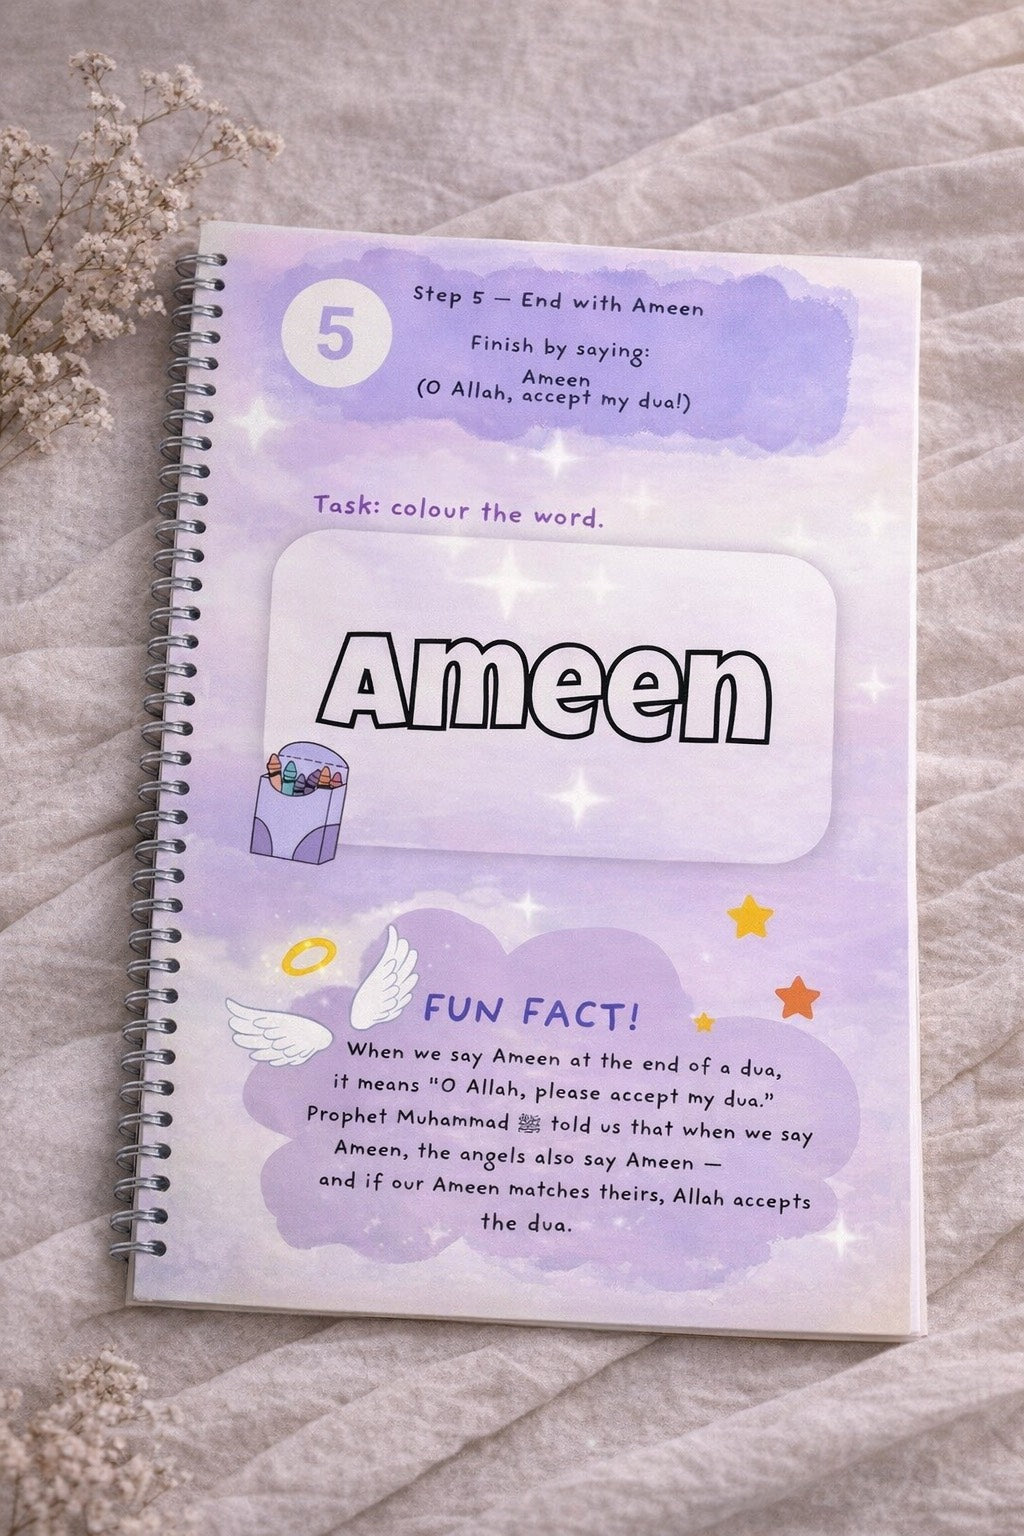 5
Step 5 — End with Ameen
Finish by saying:
Ameen
(O Allah, accept my dua!)
Task: colour the word.
Ameen
FUN FACT!
When we say Ameen at the end of a dua,
it means "O Allah, please accept my dua.”
Prophet Muhammad ﷺ told us that when we say
Ameen, the angels also say Ameen —
and if our Ameen matches theirs, Allah accepts
the dua.